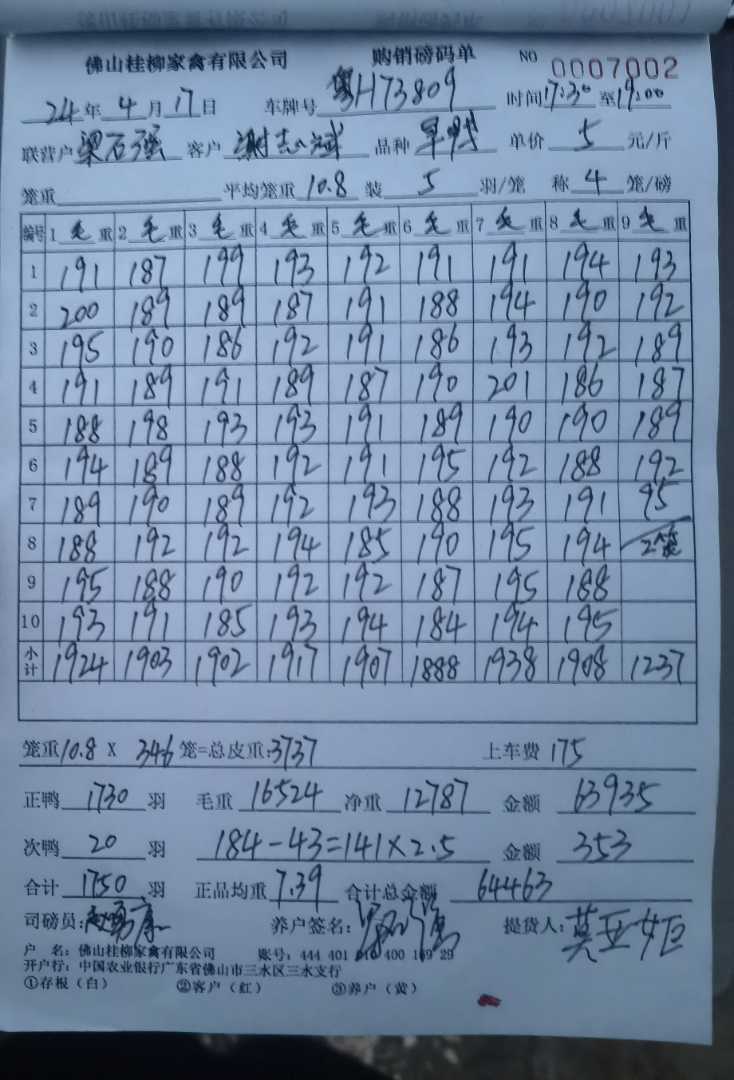 佛山桂柳家禽有限公司 购销磅码单 NO 0007002
24年4月17日 车牌号 粤H73809 时间17:30至19:00
联营户梁石强 客户 谢志斌 品种 单价 5 元/斤
笼重 平均笼重10.8 装 5 羽/笼 称 4 笼/磅
编号 1毛重 2毛重 3毛重 4毛重 5毛重 6毛重 7毛重 8毛重 9毛重
1 191 187 199 193 192 191 191 194 193
2 200 189 189 187 191 188 194 190 192
3 195 190 186 192 191 186 193 192 189
4 191 189 191 189 187 190 201 186 187
5 188 198 193 193 191 189 190 190 189
6 194 189 188 192 191 195 192 188 192
7 189 190 189 192 193 188 193 191 95
8 188 192 192 194 185 190 195 194 2笼
9 195 188 190 192 192 187 195 188
10 193 191 185 193 194 184 194 195
小计 1924 1903 1902 1917 1907 1888 1938 1908 1237
笼重10.8 X 346 笼=总皮重:3737 上车费 175
正鸭 1730 羽 毛重 16524 净重 12787 金额 63935
次鸭 20 羽 184-43=141×2.5 金额 353
合计 1750 羽 正品均重 7.39 合计总金额 64463
司磅员: 养户签名: 提货人:莫亚姬
户 名: 佛山桂柳家禽有限公司 账号: 444 401 400 29
开户行: 中国农业银行广东省佛山市三水区三水支行
①存根（白） ②客户（红） ③养户（黄）